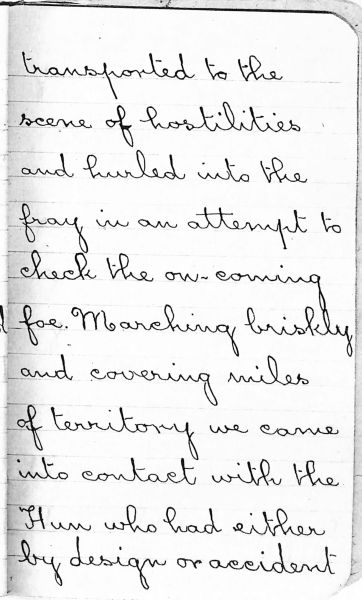 transported to the
scene of hostilities
and hurled into the
fray in an attempt to
check the on-coming
foe. Marching briskly
and covering miles
of territory we came
into contact with the
Hun who had either
by design or accident